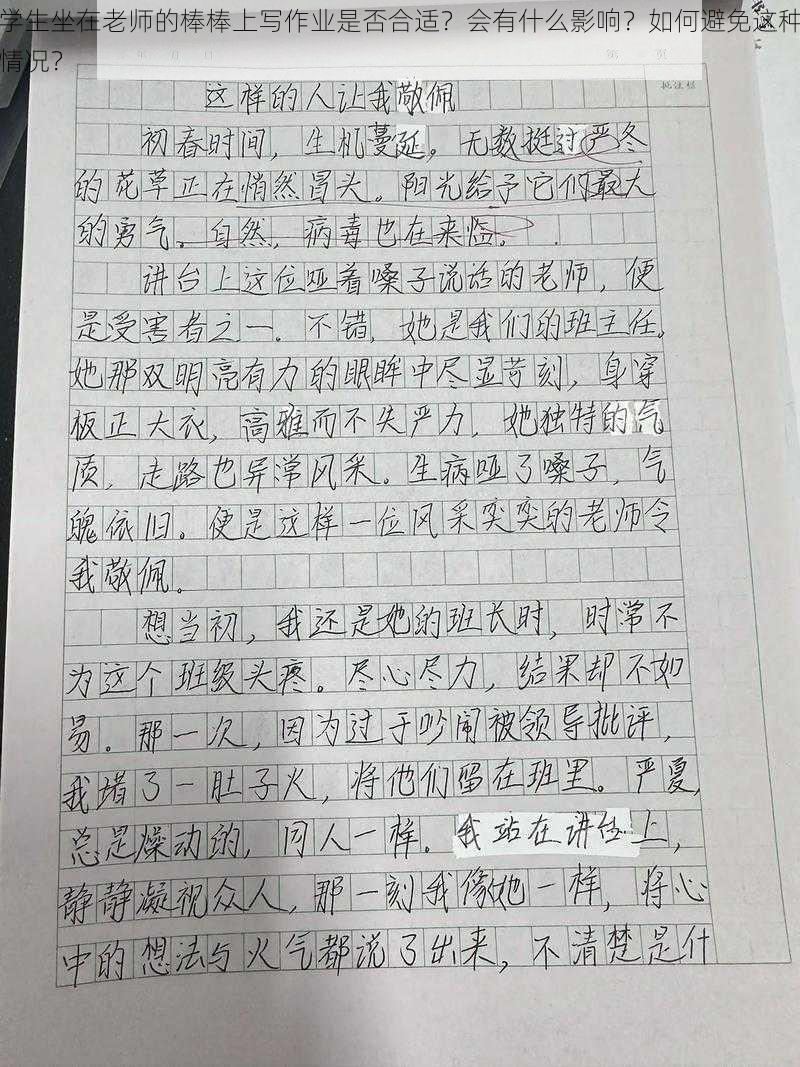 学生坐在老师的棒棒上写作业是否合适？会有什么影响？如何避免这种
情况？
月 日
第 页
批注栏
这样的人让我敬佩
初春时间，生机蔓延。无数挺过严冬
的花草正在悄然冒头。阳光给予它们最大
的勇气。自然，病毒也在来临。
讲台上这位哑着嗓子说话的老师，便
是受害者之一．不错，她是我们的班主任。
她那双明亮有力的眼眸中尽显苛刻，身穿
板正大衣，高雅而不失严力，她独特的气
质，走路也异常风采。生病哑了嗓子，气
魄依旧。便是这样一位风采奕奕的老师令
我敬佩。
想当初，我还是她的班长时，时常不
为这个班级头疼。尽心尽力，结果却不如
易。那一次，因为过于吵闹被领导批评，
我堵了一肚子火，将他们留在班里。严夏，
总是燥动的，同人一样。我站在讲台上，
静静凝视众人，那一刻我像她一样，将心
中的想法与火气都说了出来，不清楚是什